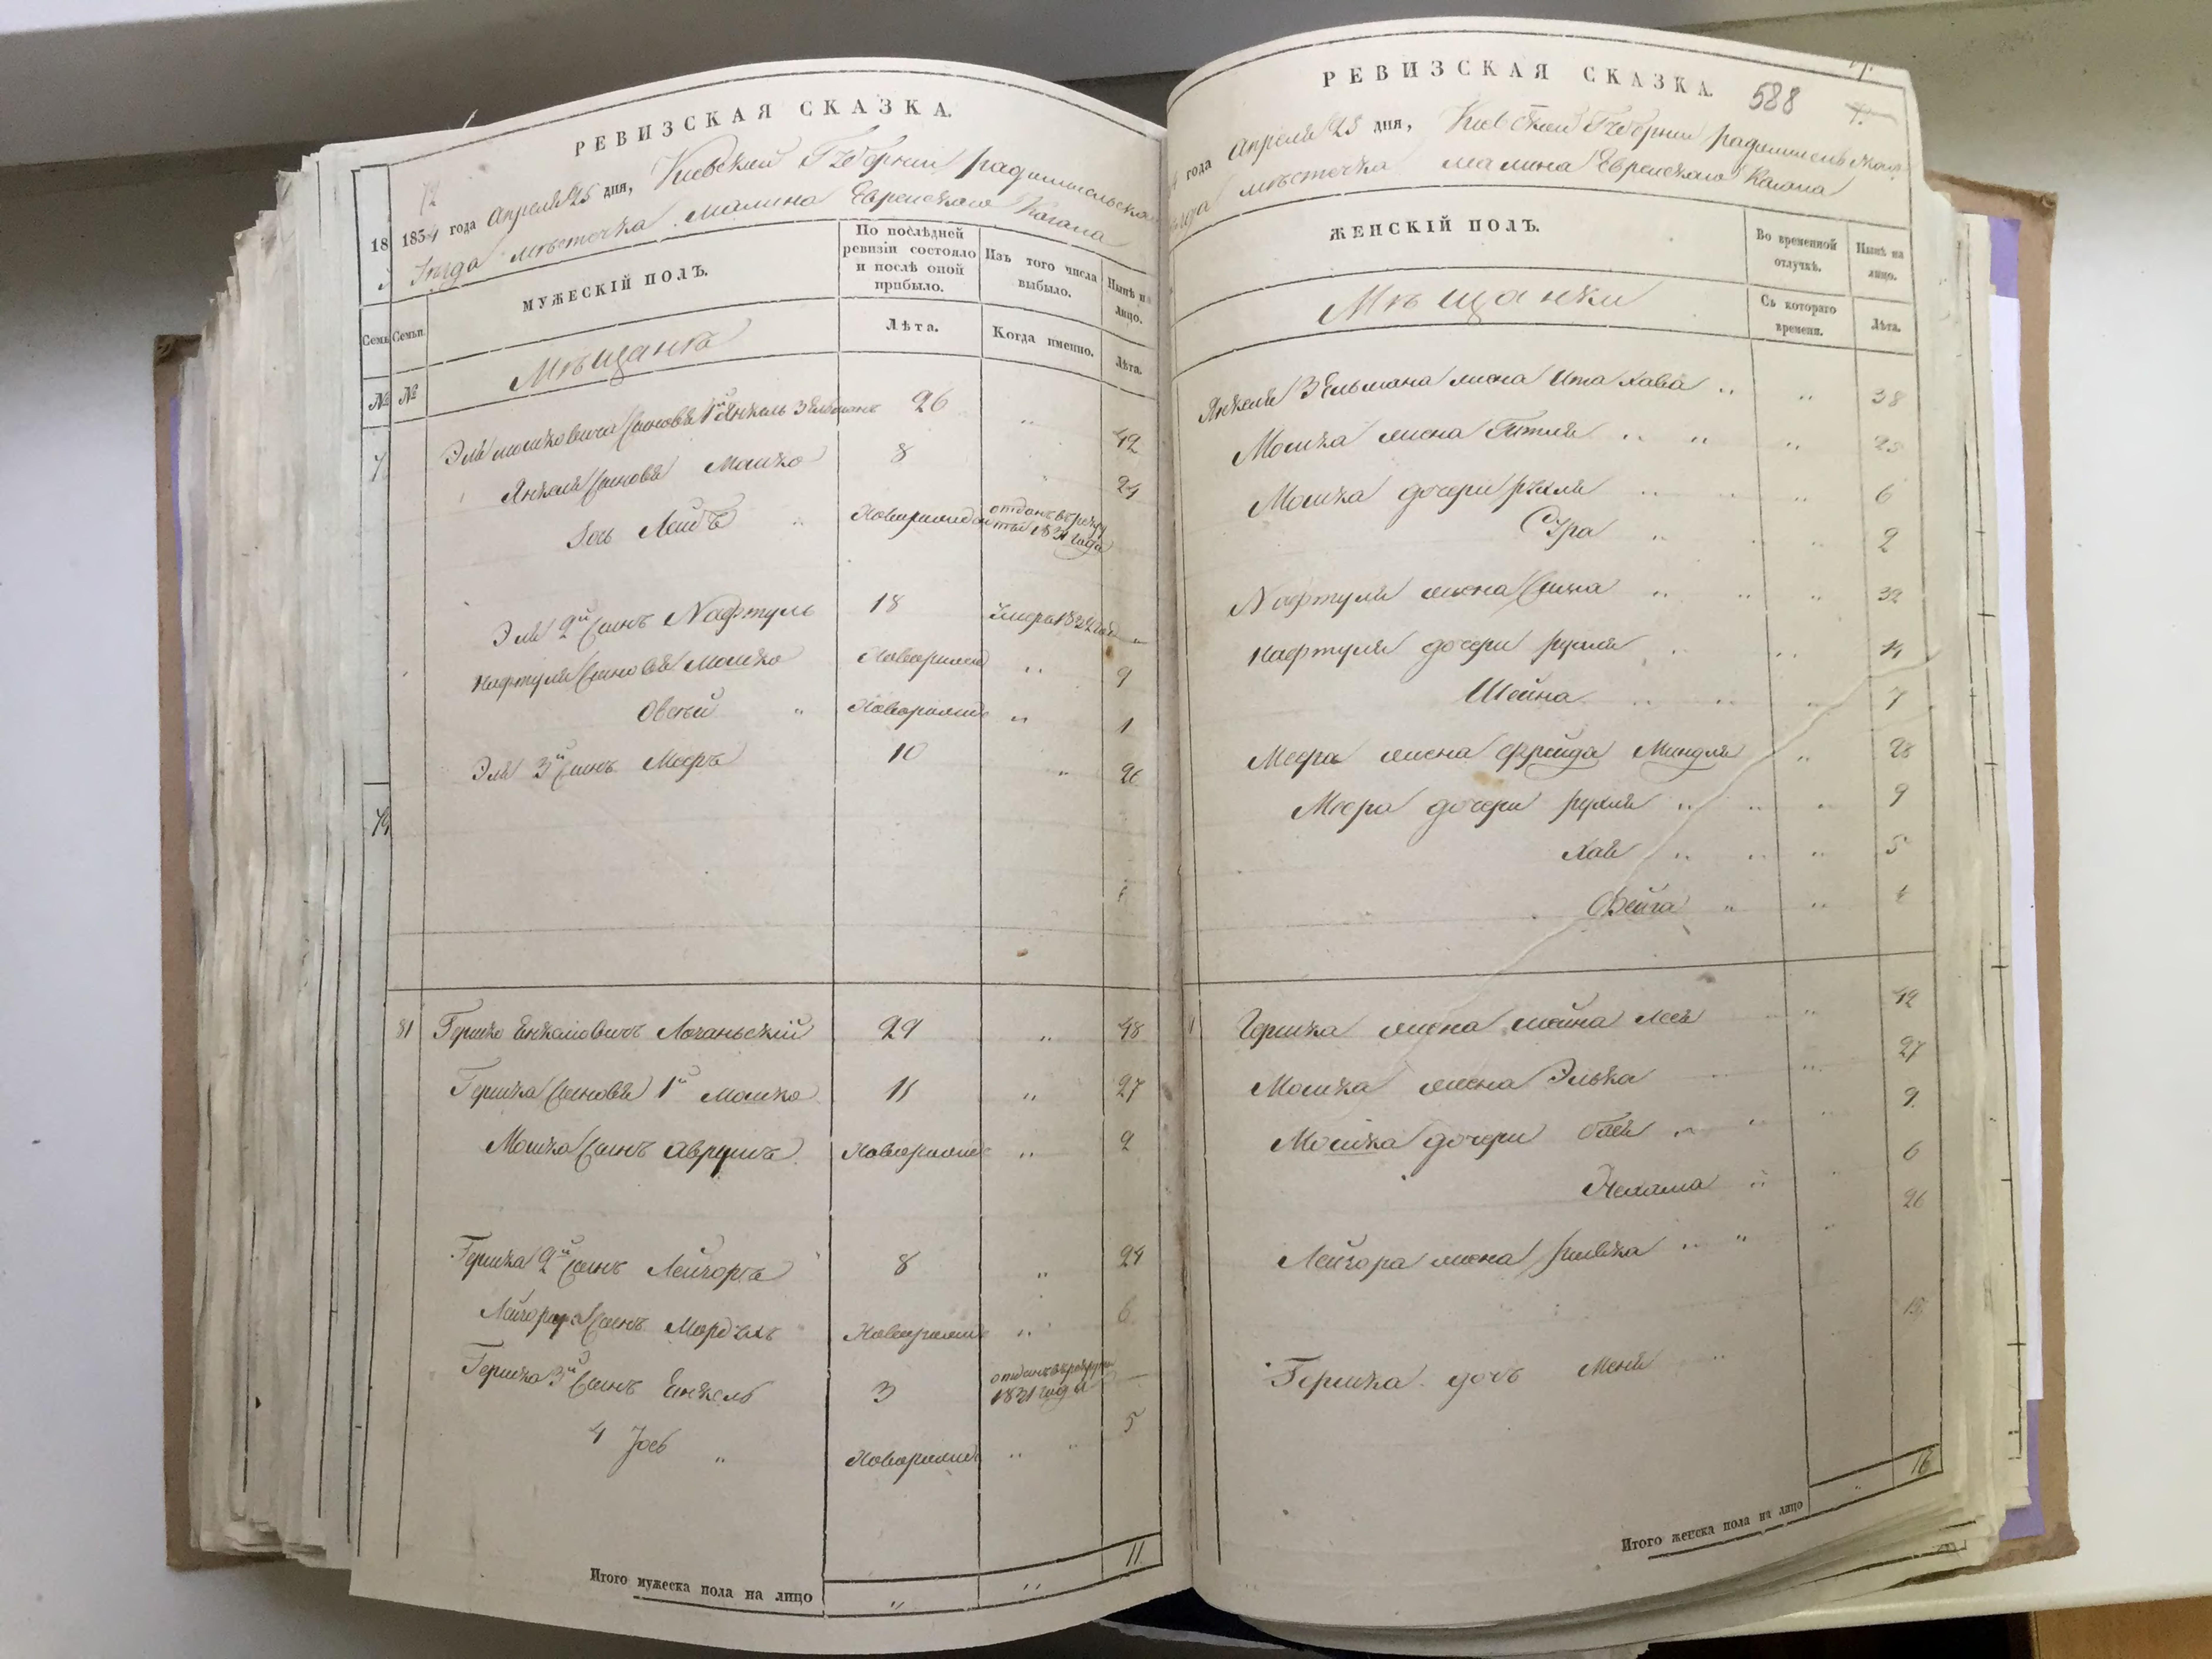 РЕВИЗСКАЯ СКАЗКА.
72
1834 года Апреля 25 дня, Киевской Губернии радомысльскаго
уезда местечка малина Еврейскаго Кагала
18
МУЖЕСКІЙ ПОЛЪ.
По послѣдней ревизіи состояло и послѣ оной прибыло.
Изъ того числа выбыло.
Нынѣ на лицо.
Семьи.
Лѣта.
Когда именно.
Лѣта.
№ №
Мѣщанѣ
Эля мошковича сыновья 1й Янкель Зельманъ 26 " 42
Янкеля сыновья Мошко 8 " 24
Іось Лейбъ " Новорожден отданъ въ рекруты 1831 года
Эля 2й сынъ Нафтуль 18 Умеръ 1832 года "
Нафтуля сыновья Мошко Новорожд " 9
Овсѣй " Новорожд " 1
Эля 3й сынъ Мееръ 10 " 26
81 Гершко Енкелiовичъ Логаньскій 29 " 48
Гершка сыновья 1й Мошко 11 " 27
Мошка сынъ Аврумъ Новорожд " 2
Гершка 2й сынъ Лейзоръ 8 " 24
Лейзора сынъ Мордухъ Новорожд " 6
Гершка 3й сынъ Енкель 3 отданъ въ рекруты 1831 года —
4 Іось " Новорожд " " 5
Итого мужеска пола на лицо " " 11
РЕВИЗСКАЯ СКАЗКА.
588
года Апреля 25 дня, Киевской Губернии
местечка малина Еврейскаго Кагала
ЖЕНСКІЙ ПОЛЪ.
Во временной отлучкѣ.
Нынѣ на лицо.
Мѣщанки
Съ котораго времени.
Лѣта.
Янкеля Зельмана жена Ита Хава " " 38
Мошка жена " " " 25
Мошка дочери рухля " " 6
Сура " " " 2
Нафтуля жена Сима " " " 32
Нафтуля дочери рухля " " 14
Шейна " " " 7
Меера жена фрейда Миндля " 28
Меера дочери рухля " " " 9
Хая " " " 5
Фейга " "
Гершка жена шейна лея " 42
Мошка жена Элька " 27
Мошка дочери бася " " " 9
Нехама " " 6
Лейзора жена ривка " " " 26
Гершка дочь Меня " 15
Итого женска пола на лицо " 16